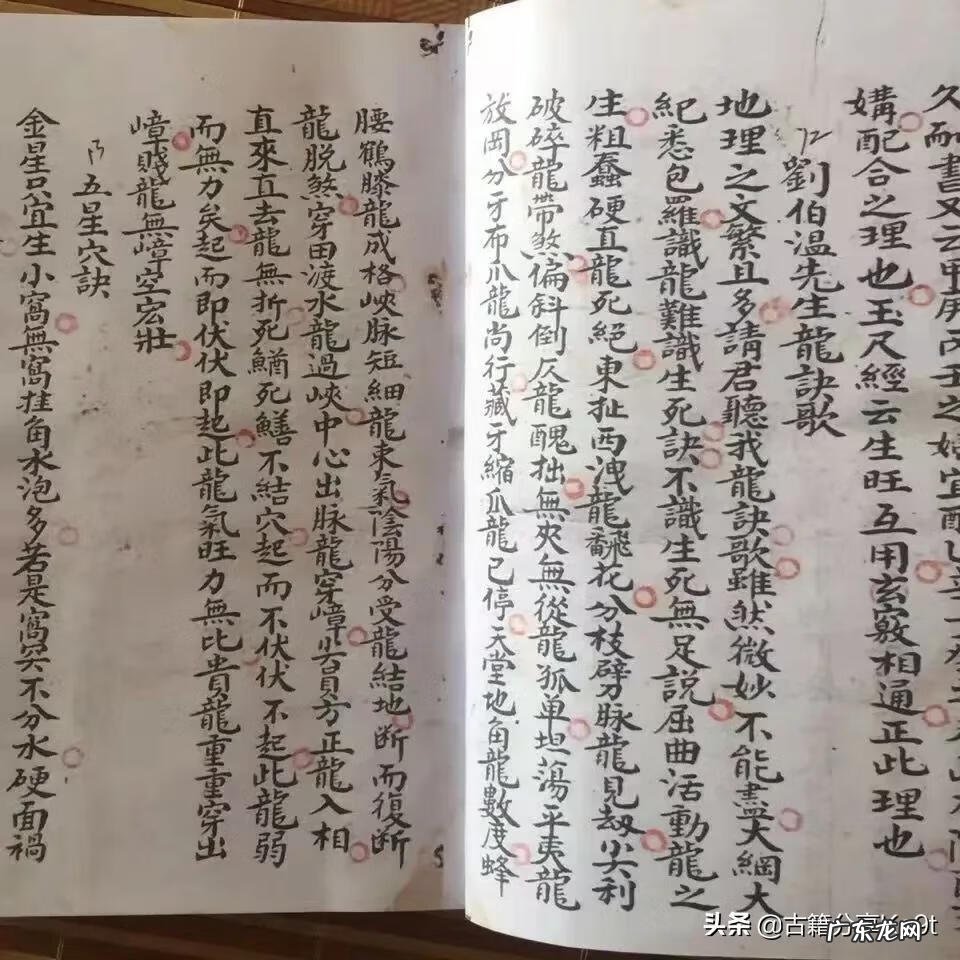 久耐書又云甲庚丙壬之
媾配合之理也玉尺經云生旺互用玄竅相通正此理也
劉伯温先生龍訣歌
地理之文繁且多請君聽我龍訣歌雖然微妙不能盡大綱大
紀悉包羅識龍難識生死訣不識生死無足説屈曲活動龍之
生粗蠢硬直龍死絕東扯西洩龍翻花分枝劈脉龍見劫尖利
破碎龍帶煞偏斜倒仄龍醜拙無夾無從龍孤单坦蕩平夷龍
放岡分牙布爪龍尚行藏牙縮爪龍已停天堂地角龍數度蜂
腰鶴膝龍成格峽脉短細龍束氣陰陽分受龍結地断而復断
龍脱煞穿田渡水龍過峽中心出脉龍穿嶂皆貝方正龍入相
直來直去龍無折死鰌死鱔不結穴起而不伏伏不起此龍弱
而無力矣起而即伏伏即起此龍氣旺力無比貴龍重重穿出
嶂賤龍無嶂空宏壯
五星穴訣
金星只宜生小窩無窩挂角水泡多若是窩冥不分水硬面禍
头条 @古籍分享
广东龙网